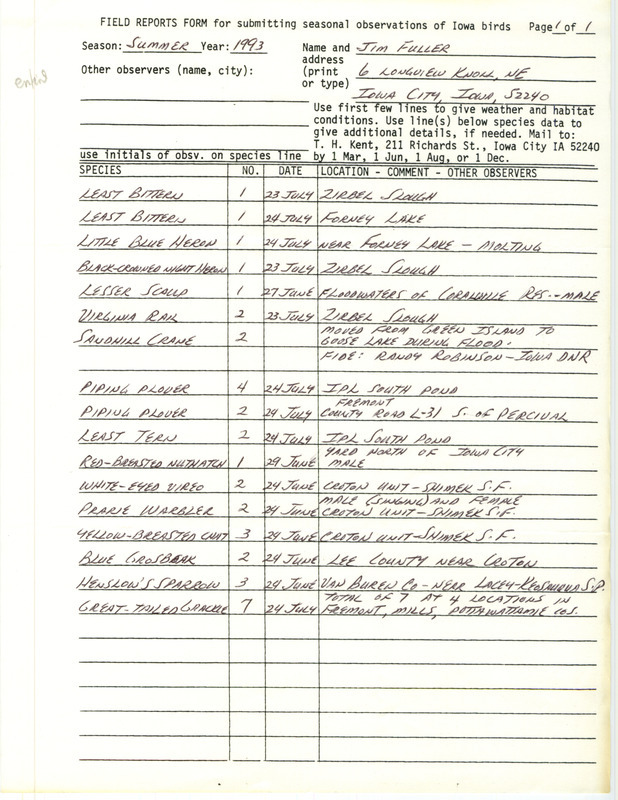 FIELD REPORTS FORM for submitting seasonal observations of Iowa birds Page 1 of 1
Season: SUMMER Year: 1993 Name and JIM FULLER
address
Other observers (name, city): (print 6 LONGVIEW KNOLL, NE
or type)
entered
IOWA CITY, IOWA, 52240
Use first few lines to give weather and habitat
conditions. Use line(s) below species data to
give additional details, if needed. Mail to:
T. H. Kent, 211 Richards St., Iowa City IA 52240
use initials of obsv. on species line by 1 Mar, 1 Jun, 1 Aug, or 1 Dec.
SPECIES NO. DATE LOCATION - COMMENT - OTHER OBSERVERS
LEAST BITTERN 1 23 JULY ZIRBEL SLOUGH
LEAST BITTERN 1 24 JULY FORNEY LAKE
LITTLE BLUE HERON 1 24 JULY NEAR FORNEY LAKE - MOLTING
BLACK-CROWNED NIGHT HERON 1 23 JULY ZIRBEL SLOUGH
LESSER SCAUP 1 27 JUNE FLOODWATERS OF CORALVILLE RES. - MALE
VIRGINIA RAIL 2 23 JULY ZIRBEL SLOUGH
MOVED FROM GREEN ISLAND TO
SANDHILL CRANE 2 GOOSE LAKE DURING FLOOD.
FIDE: RANDY ROBINSON - IOWA DNR
PIPING PLOVER 4 24 JULY IPL SOUTH POND
FREMONT
PIPING PLOVER 2 24 JULY COUNTY ROAD L-31 S. OF PERCIVAL
LEAST TERN 2 24 JULY IPL SOUTH POND
YARD NORTH OF IOWA CITY
RED-BREASTED NUTHATCH 1 29 JUNE MALE
WHITE-EYED VIREO 2 24 JUNE CROTON UNIT - SHIMEK S.F.
MALE (SINGING) AND FEMALE
PRARIE WARBLER 2 24 JUNE CROTON UNIT - SHIMEK S.F.
YELLOW-BREASTED CHAT 3 24 JUNE CROTON UNIT - SHIMEK S.F.
BLUE GROSBEAK 2 24 JUNE LEE COUNTY NEAR CROTON
HENSLOW'S SPARROW 3 24 JUNE VAN BUREN CO - NEAR LACEY-KEOSAUQUA S.P.
TOTAL OF 7 AT 4 LOCATIONS IN
GREAT-TAILED GRACKLE 7 24 JULY FREMONT, MILLS, POTTAWATTAMIE COS.